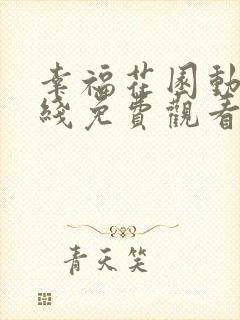 幸福花園動
綫免費觀看
青天笑